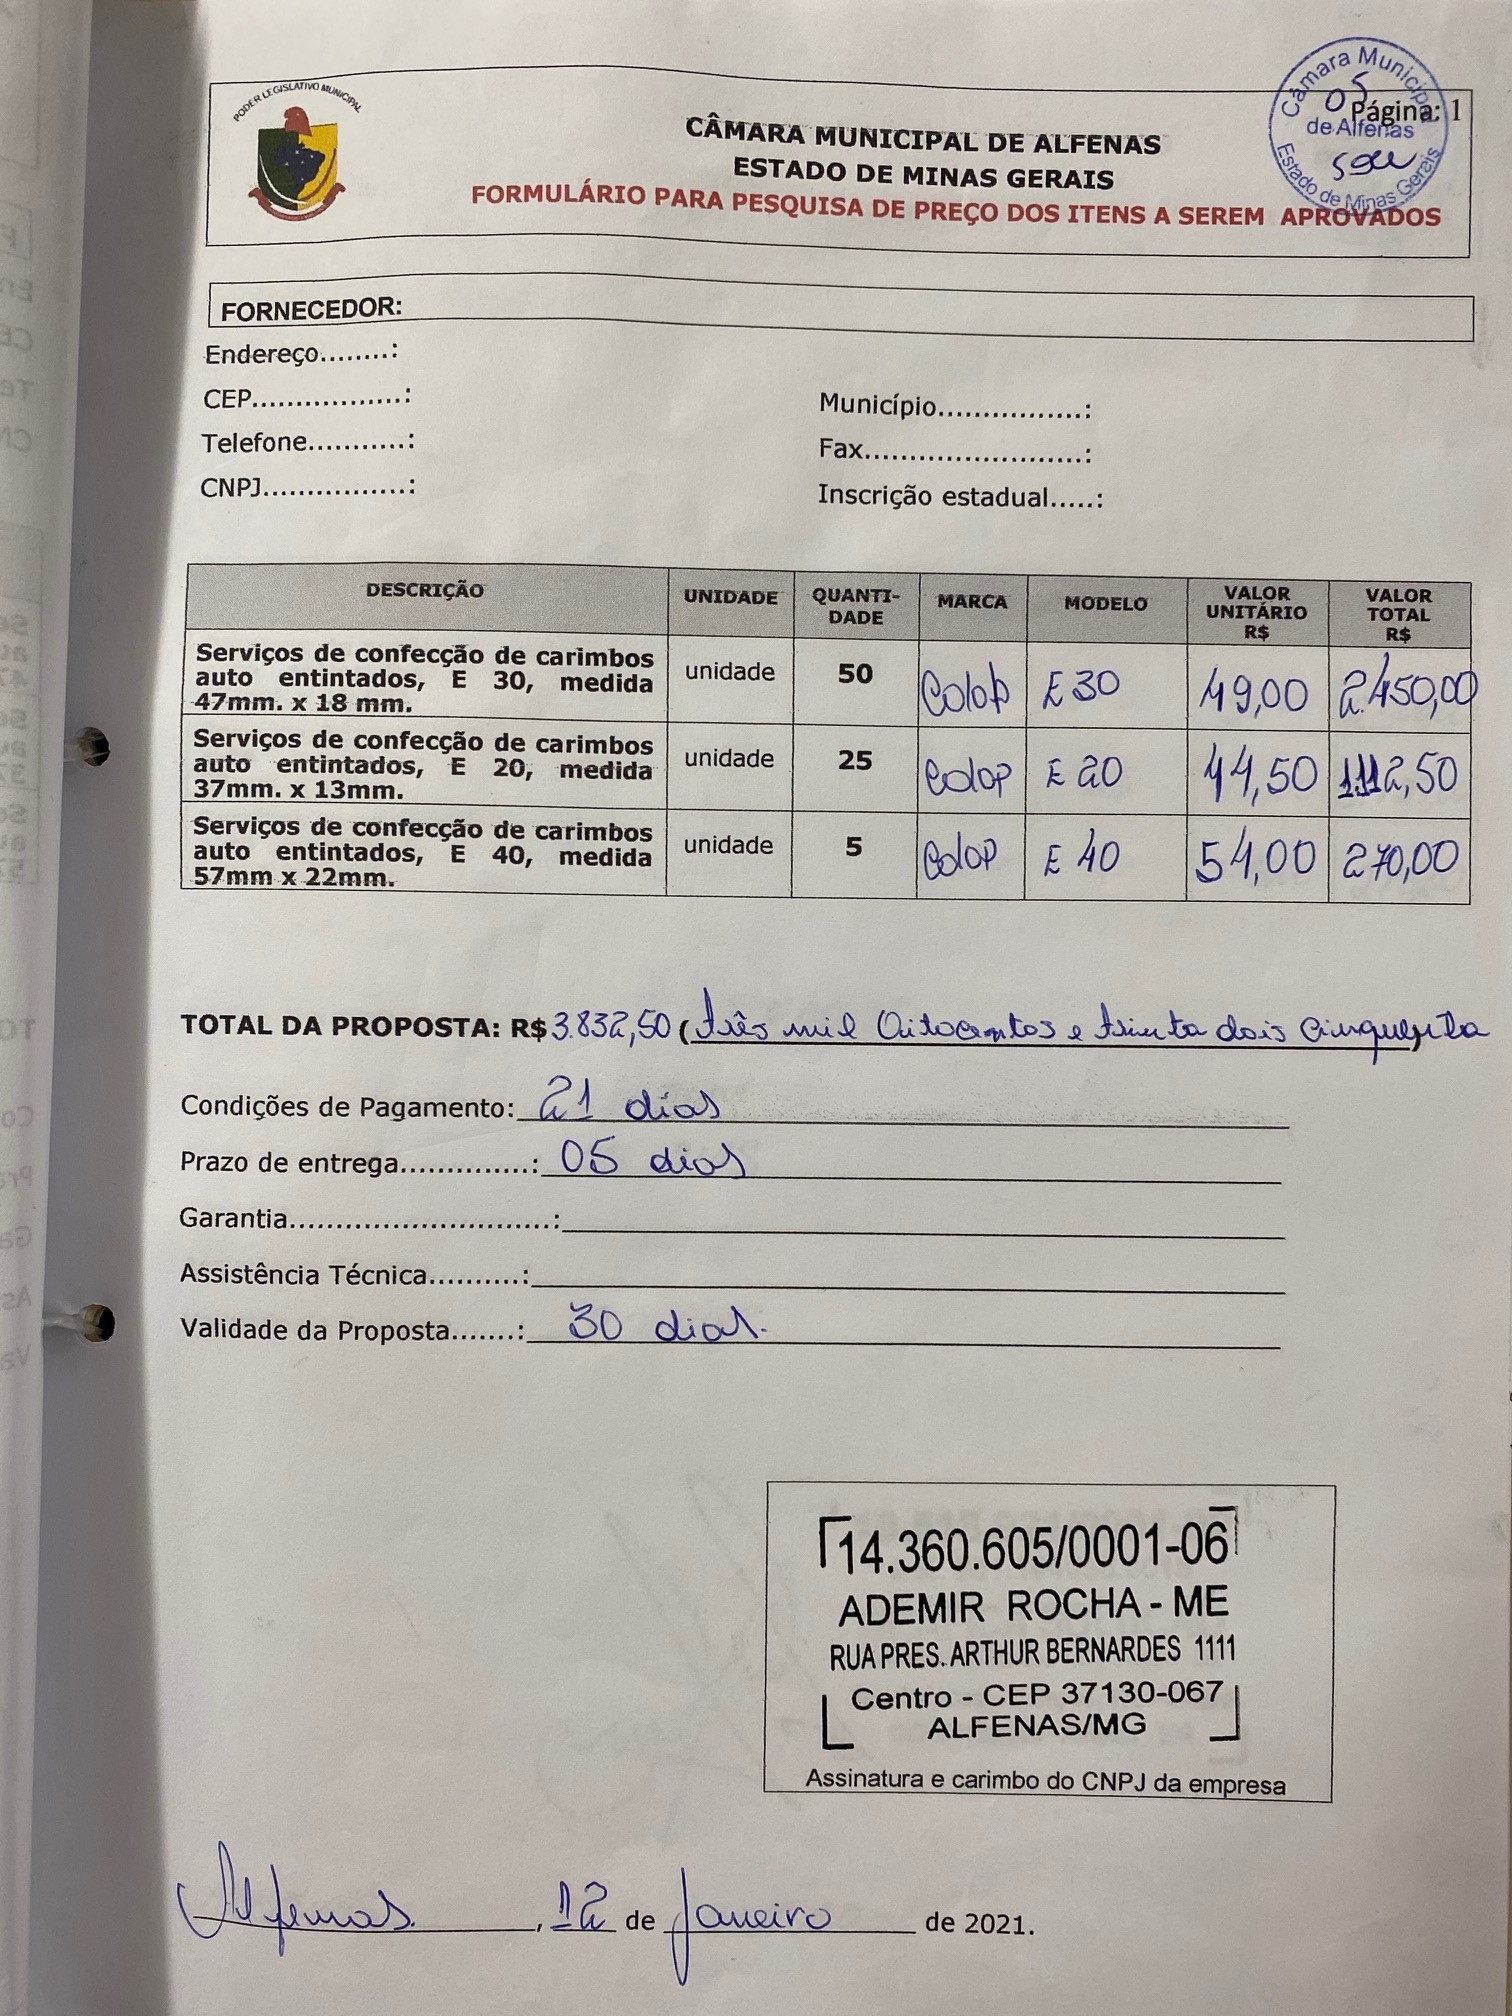 PODER LEGISLATIVO MUNICIPAL
CÂMARA MUNICIPAL DE ALFENAS
ESTADO DE MINAS GERAIS
FORMULÁRIO PARA PESQUISA DE PREÇO DOS ITENS A SEREM APROVADOS
Câmara Municipal
05
Página: 1
de Alfenas
Estado de Minas Gerais
FORNECEDOR:
Endereço........:
CEP.................:
Município................:
Telefone...........:
Fax........................:
CNPJ................:
Inscrição estadual.....:
DESCRIÇÃO UNIDADE QUANTI-DADE MARCA MODELO VALOR UNITÁRIO R$ VALOR TOTAL R$
Serviços de confecção de carimbos unidade 50 Colop E 30 49,00 2.450,00
auto entintados, E 30, medida
47mm. x 18 mm.
Serviços de confecção de carimbos unidade 25 Colop E 20 44,50 1.112,50
auto entintados, E 20, medida
37mm. x 13mm.
Serviços de confecção de carimbos unidade 5 Colop E 40 54,00 270,00
auto entintados, E 40, medida
57mm x 22mm.
TOTAL DA PROPOSTA: R$ 3.832,50 (três mil Oitocentos e trinta dois Cinquenta
Condições de Pagamento: 21 dias
Prazo de entrega..............: 05 dias
Garantia...........................:
Assistência Técnica..........:
Validade da Proposta.......: 30 dias.
14.360.605/0001-06
ADEMIR ROCHA - ME
RUA PRES. ARTHUR BERNARDES 1111
Centro - CEP 37130-067
ALFENAS/MG
Assinatura e carimbo do CNPJ da empresa
Alfenas, 12 de Janeiro de 2021.